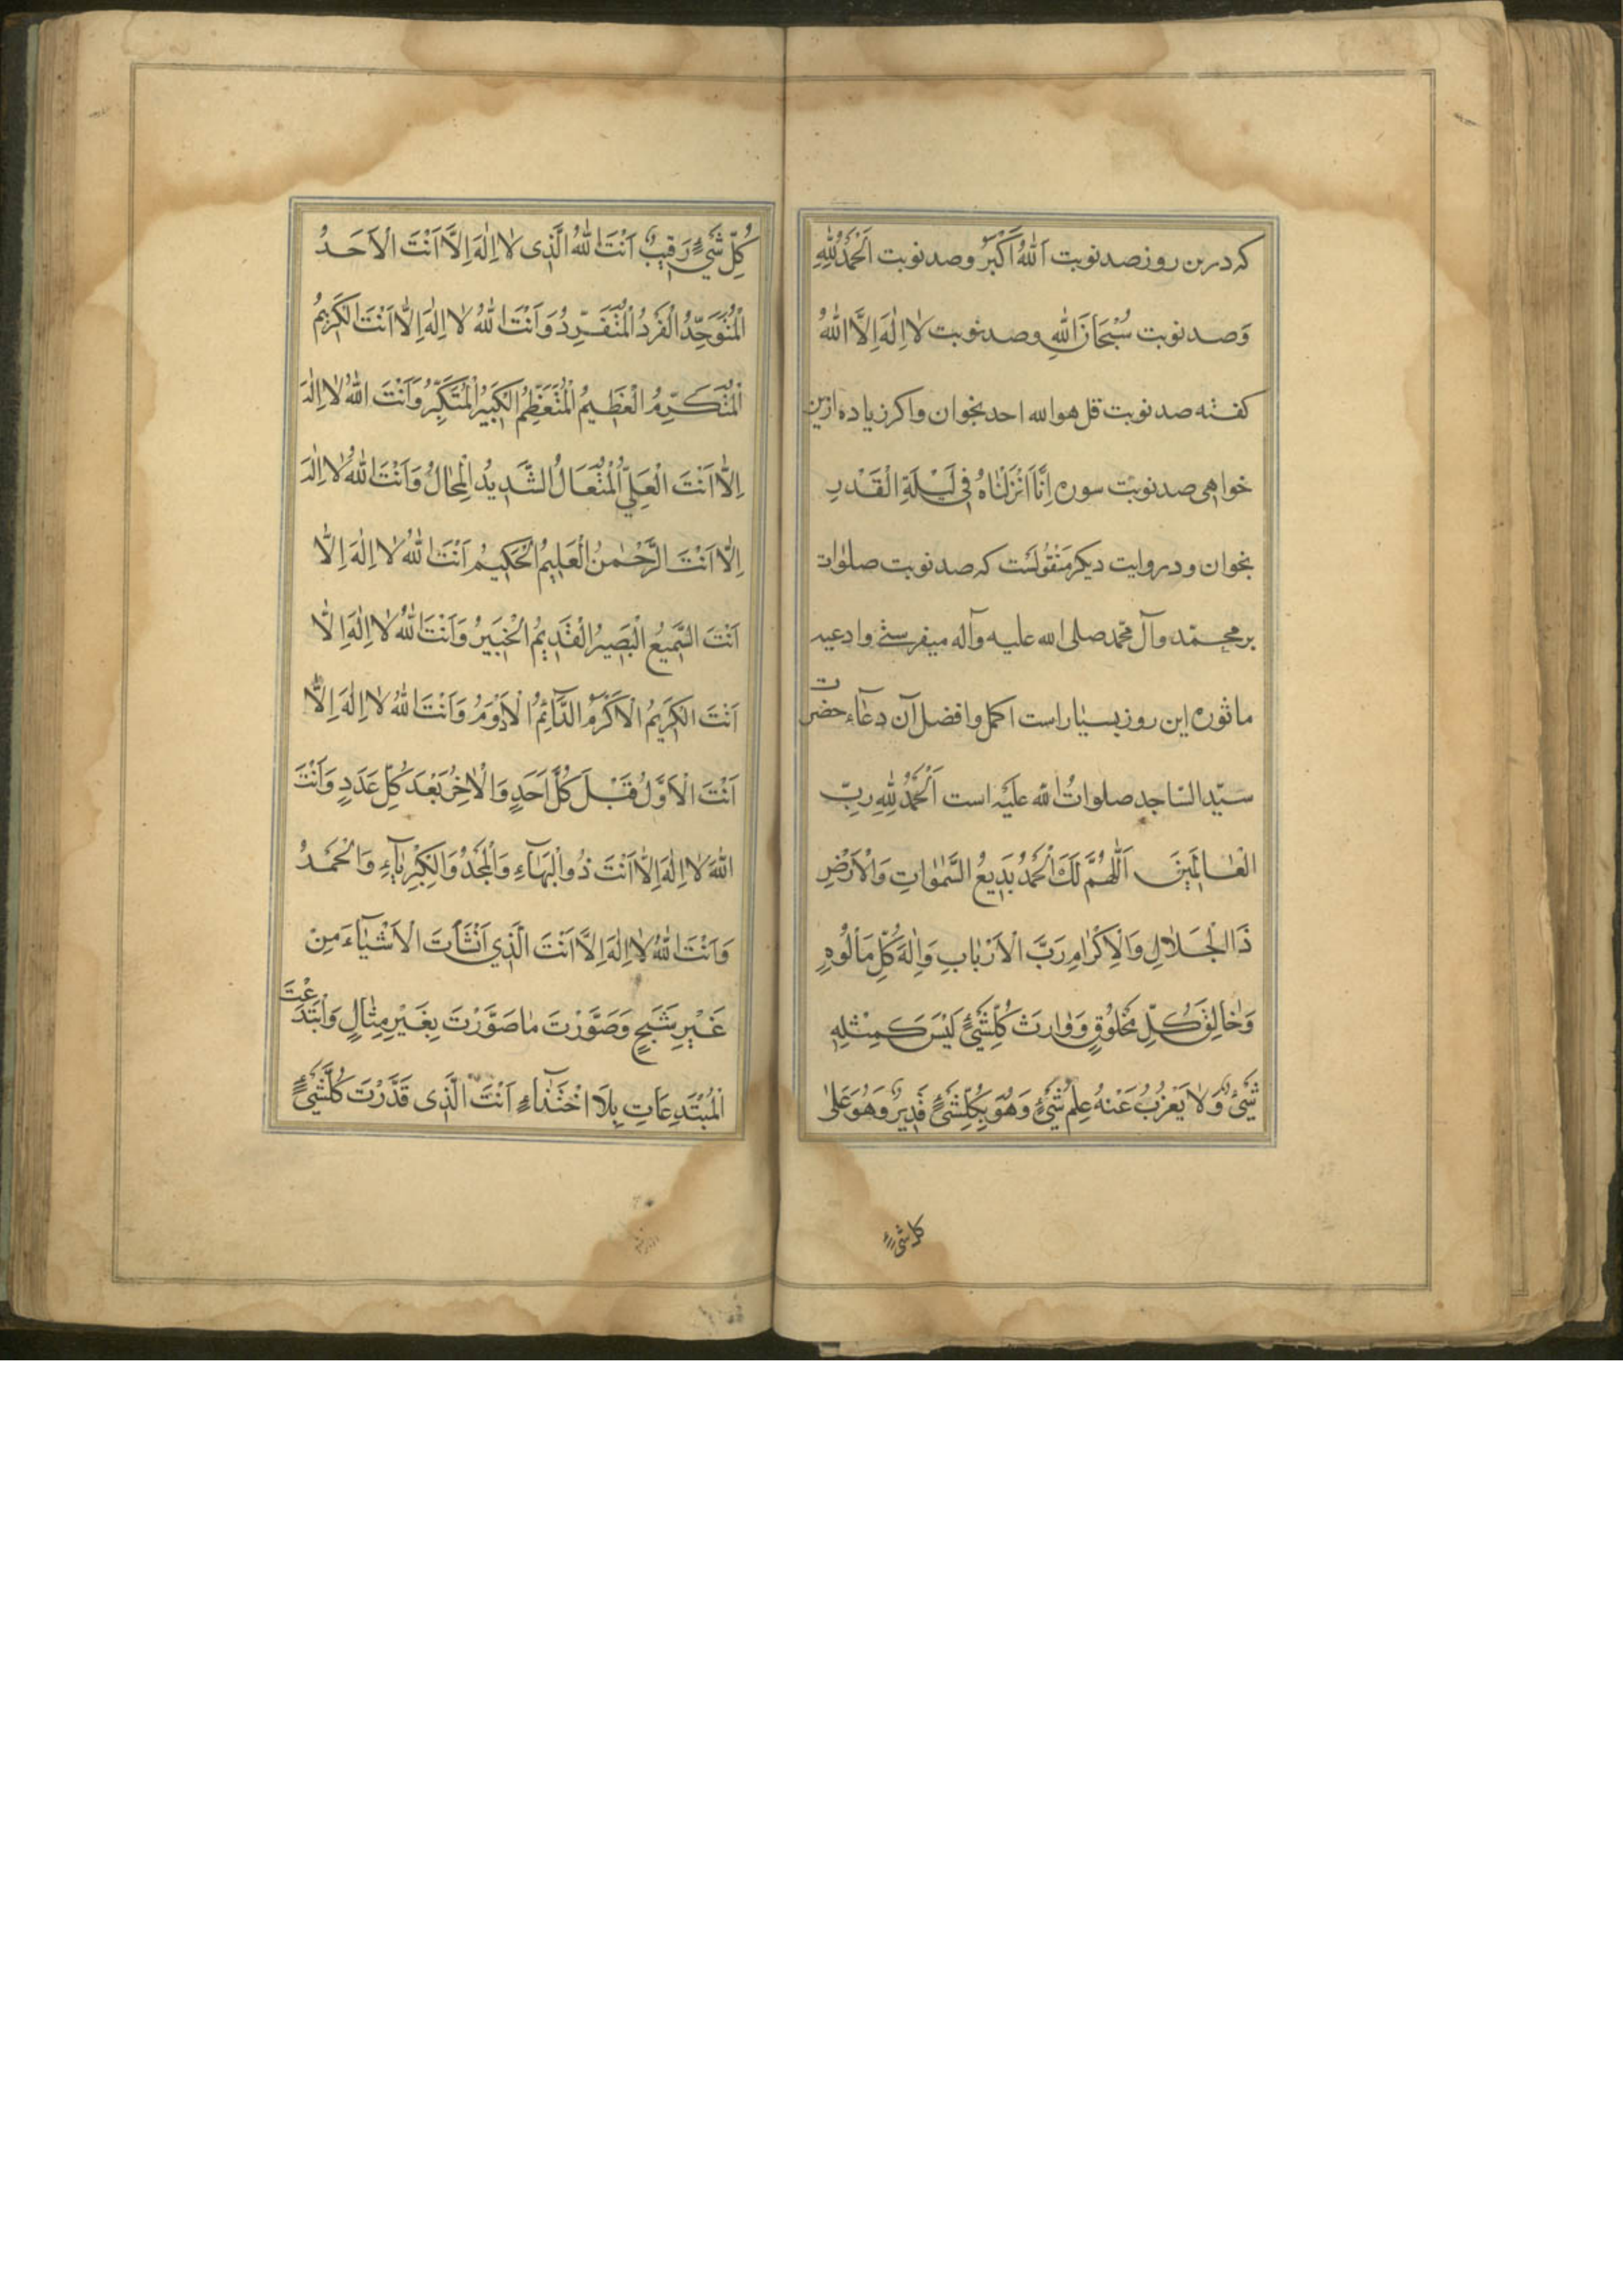 که درین روز صد نوبت اَللّٰهُ اَکْبَرُ و صد نوبت اَلْحَمْدُ لِلّٰهِ
وَ صد نوبت سُبْحَانَ اللهِ و صد نوبت لٰا اِلٰهَ اِلَّا اللهُ
کفته صد نوبت قل هو الله احد بخوان و اکر زیاده ازین
خواهی صد نوبت سوره اِنَّا اَنْزَلْنٰاهُ فِی لَیْلَةِ الْقَدْرِ
بخوان و در روایت دیکر مَنْقُولَسْت که صد نوبت صلوٰات
بر محمّد و آل محمّد صلی الله علیه وآله میفرستی و ادعیه
ماثوره این روز بسیٰار است اکمل و افضل آن دعٰآء حضرت
سیّد السّاجد صلواتُ الله علیَه است اَلْحَمْدُ لِلّٰهِ رَبِّ
الْعٰالَمِینَ اَللّٰهُمَّ لَكَ الْحَمْدُ بَدِیعُ السَّمٰوٰاتِ وَالْاَرْضِ
ذَا الْجَلٰالِ وَالْاِکْرٰامِ رَبَّ الْاَرْبٰابِ وَاِلٰهَ کُلِّ مَاْلُوهٍ
وَخٰالِقَ کُلِّ مَخْلُوقٍ وَوٰارِثَ کُلِّشَیْءٍ لَیْسَ کَمِثْلِهِ
شَیْءٌ وَلٰا یَعْزُبُ عَنْهُ عِلْمُ شَیْءٍ وَهُوَ بِکُلِّشَیْءٍ قَدِیرٌ وَهُوَ عَلٰی
کل شیء
کُلِّ شَیْءٍ رَقِیبٌ اَنْتَ اللهُ الَّذِی لٰا اِلٰهَ اِلَّا اَنْتَ الْاَحَدُ
الْمُتَوَحِّدُ الْفَرْدُ الْمُتَفَرِّدُ وَاَنْتَ اللهُ لٰا اِلٰهَ اِلَّا اَنْتَ الْکَرِیمُ
الْمُتَکَرِّمُ الْعَظِیمُ الْمُتَعَظِّمُ الْکَبِیرُ الْمُتَکَبِّرُ وَاَنْتَ اللهُ لٰا اِلٰهَ
اِلَّا اَنْتَ الْعَلِیُّ الْمُتَعَالُ الشَّدِیدُ الْمِحٰالُ وَاَنْتَ اللهُ لٰا اِلٰهَ
اِلَّا اَنْتَ الرَّحْمٰنُ الْعَلِیمُ الْحَکِیمُ اَنْتَ اللهُ لٰا اِلٰهَ اِلَّا
اَنْتَ السَّمِیعُ الْبَصِیرُ الْقَدِیمُ الْخَبِیرُ وَاَنْتَ اللهُ لٰا اِلٰهَ اِلَّا
اَنْتَ الْکَرِیمُ الْاَکْرَمُ الدَّآئِمُ الْاَدْوَمُ وَاَنْتَ اللهُ لٰا اِلٰهَ اِلَّا
اَنْتَ الْاَوَّلُ قَبْلَ کُلِّ اَحَدٍ وَالْاٰخِرُ بَعْدَ کُلِّ عَدَدٍ وَاَنْتَ
اللهُ لٰا اِلٰهَ اِلَّا اَنْتَ ذُو الْبَهٰآءِ وَالْمَجْدِ وَالْکِبْرِیٰآءِ وَالْحَمْدُ
وَاَنْتَ اللهُ لٰا اِلٰهَ اِلَّا اَنْتَ الَّذِی اَنْشَأْتَ الْاَشْیٰآءَ مِنْ
غَیْرِ شَبَحٍ وَصَوَّرْتَ مٰا صَوَّرْتَ بِغَیْرِ مِثٰالٍ وَابْتَدَعْتَ
الْمُبْتَدِعَاتِ بِلَا احْتِذٰآءٍ اَنْتَ الَّذِی قَدَّرْتَ کُلَّشَیْءٍ